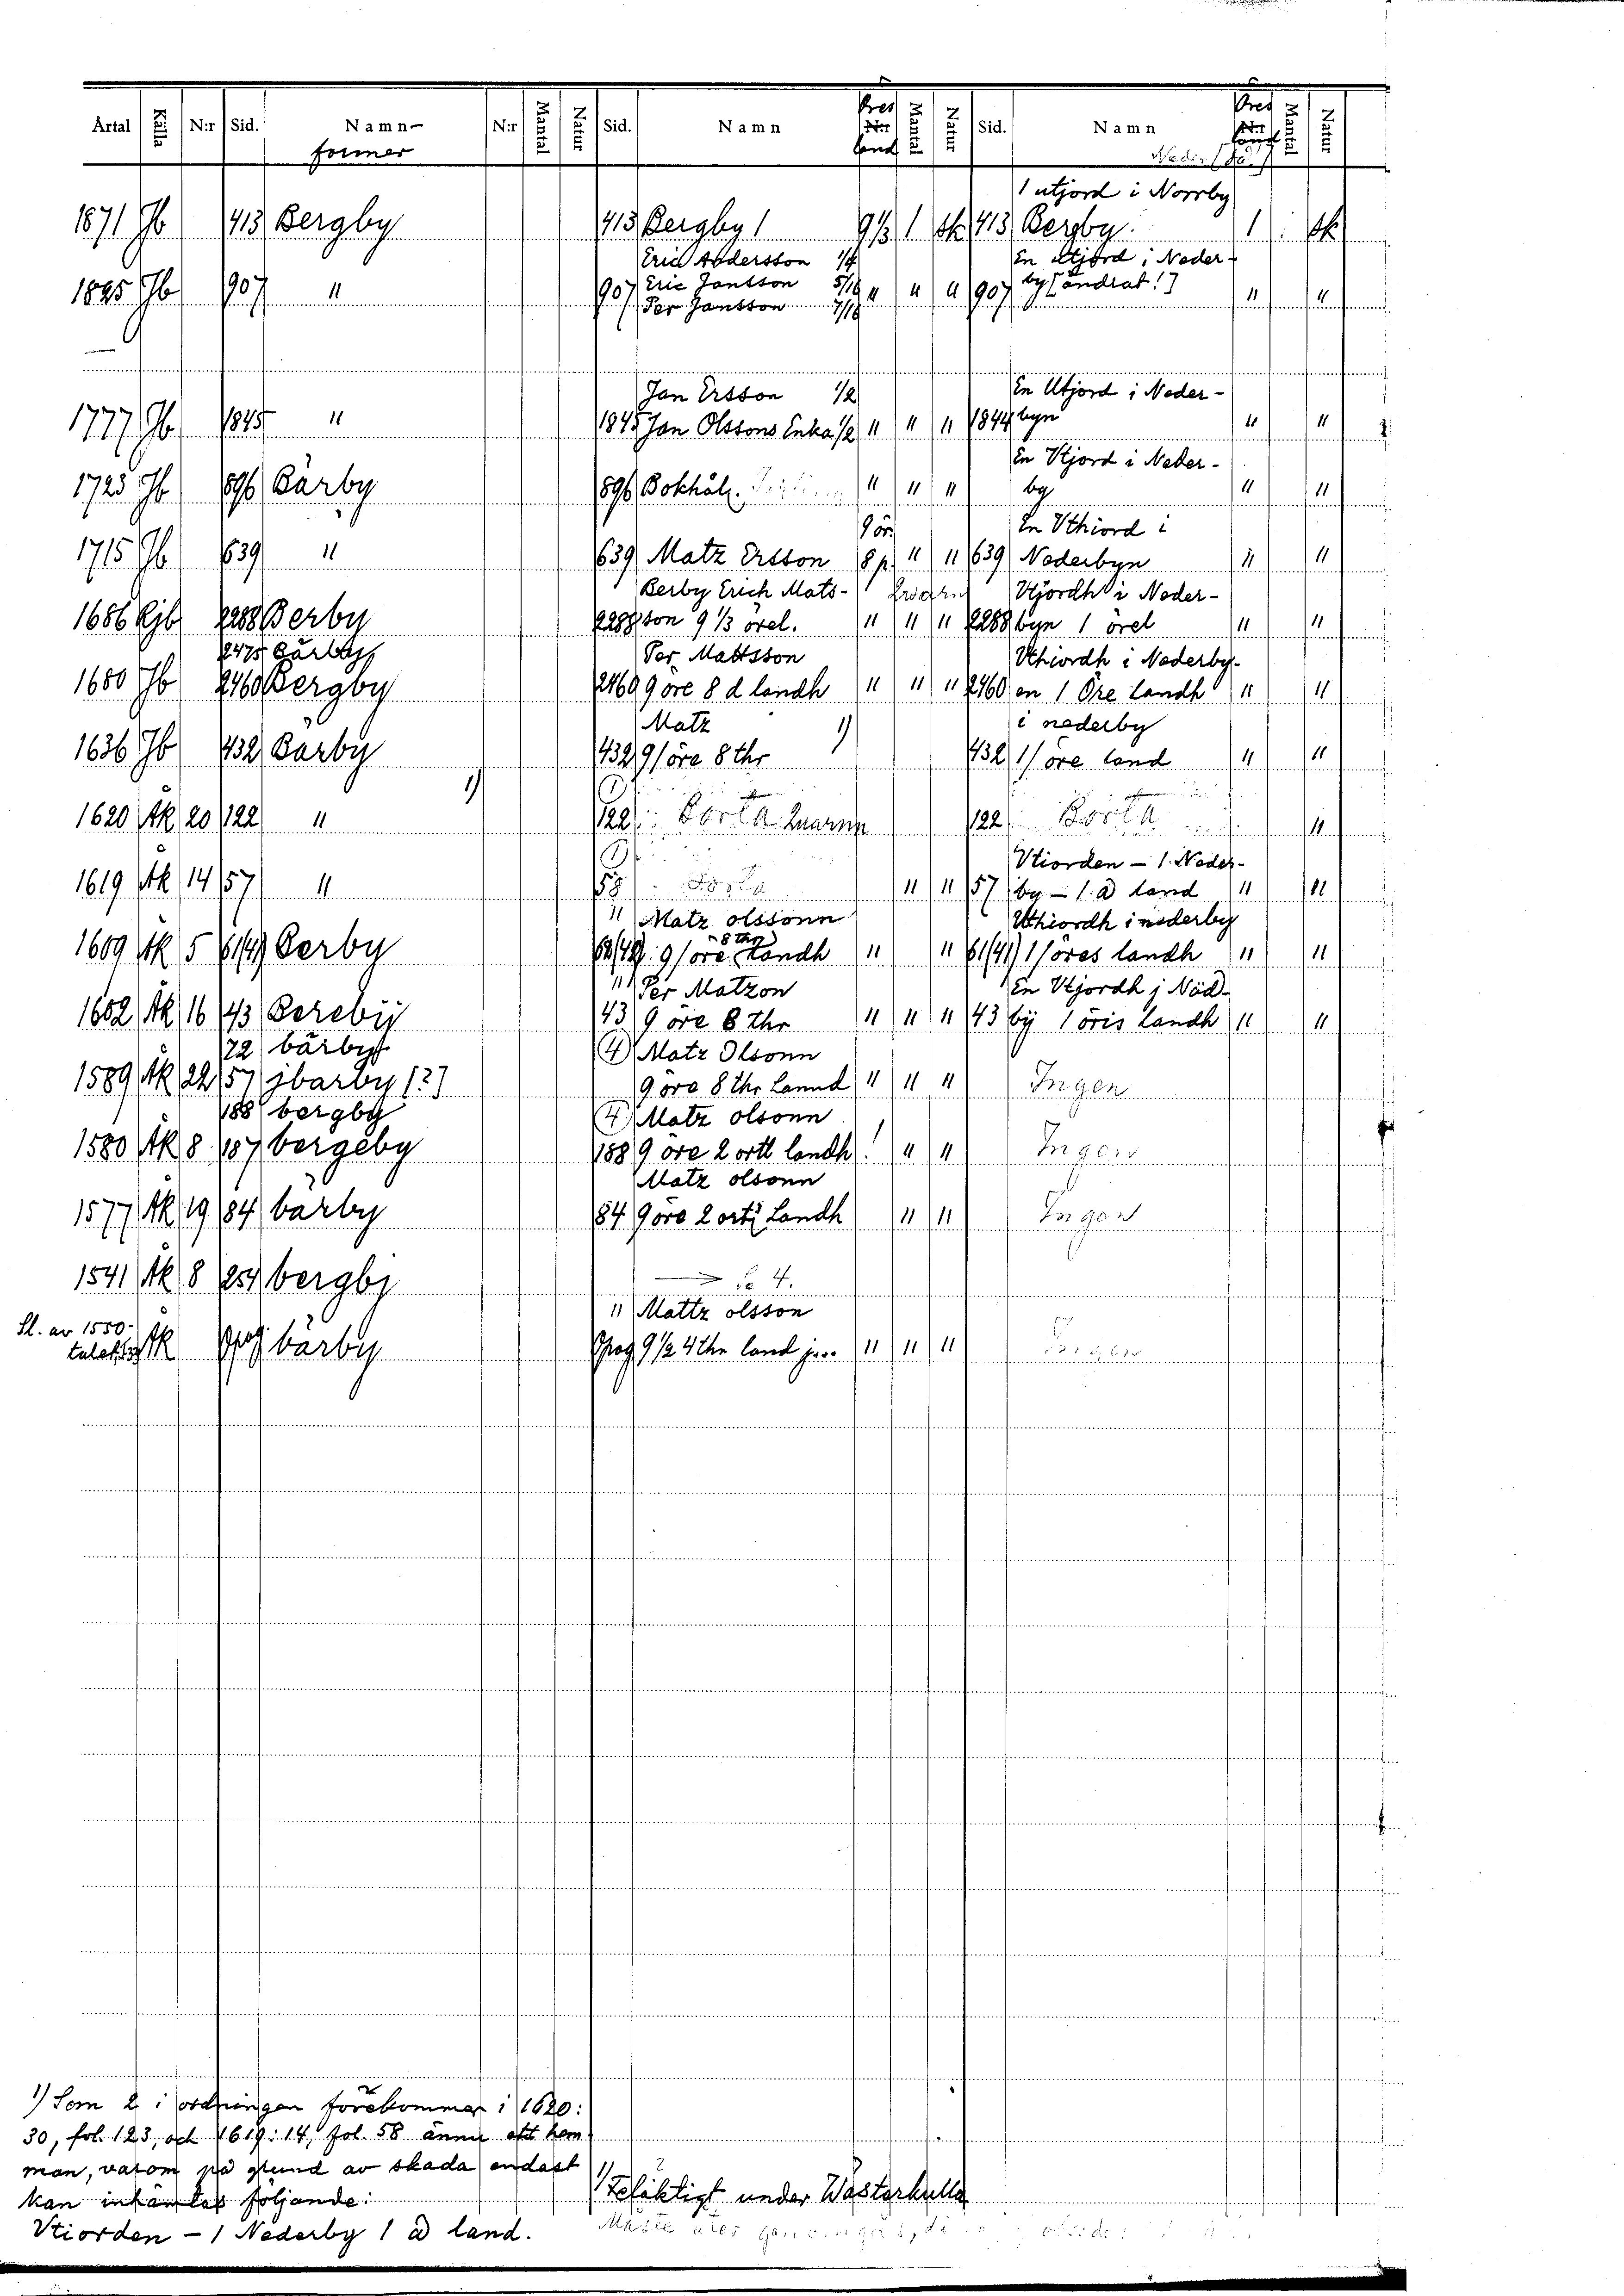 Årtal Källa N:r Sid. Namn- former N:r Mantal Natur Sid. Namn Öres land Mantal Natur Sid. Namn Öres land Mantal Natur
1 utjord i Norrby
1871 Jb 413 Bergby 413 Bergby 1 9 1/3 1 sk 413 Bergby 1 sk
Eric Andersson 1/4 En utjord i Neder-
1825 Jb 907 " 907 Eric Jansson 5/16 " " " 907 by [ändrat!] " "
Per Jansson 7/16
Jan Ersson 1/2 En Utjord i Neder-
1777 Jb 1845 " 1845 Jan Olssons Enka 1/2 " " " 1844 byn " "
En Vtjord i Neder-
1725 Jb 896 Bärby 896 Bokhål. " " " by " "
9 ör. En Vthiord i
1715 Jb 639 " 639 Matz Ersson 8 p. " " 639 Nederbyn " "
Berby Erich Mats- Vtjordh i Neder-
1686 Kjb 2288 Berby 2288 son 9 1/3 örel. " " " 2288 byn 1 örel " "
2475 Bärby Per Mattsson Vthiordh i Nederby-
1680 Jb 2460 Bergby 2460 9 öre 8 d landh " " " 2460 en 1 Öre landh " "
Matz 1) i nederby
1636 Jb 432 Bärby 432 9/ öre 8 thr 432 1/ öre land " "
1)
1620 Äk 20 122 " 122 Borta 122 Borta "
Vtiorden - 1. Neder-
1619 Äk 14 57 " 58 Borta " " 57 by - 1. a land " "
" Matz olssonn Uthiordh i nederby
1609 Äk 5 61(41) Berby 9/ öre 8 thr Landh " " 61(41) 1/ öres landh " "
" Per Matzon En Vtjordh j Näd-
1602 Äk 16 43 Berebij 43 9 öre 8 thr " " " 43 bÿ 1 öris landh " "
72 bärby (4) Matz Olsonn
1589 Äk 22 57 jbarby [?] 9 öre 8 thr Lannd " " " Ingen
188 bergby (4) Matz olsonn
1580 Äk 8 187 bergeby 188 9 öre 2 ortt landh ! " " Ingen
Matz olsonn
1577 Äk 19 84 bärby 84 9 öre 2 ort Landh " " Ingen
1541 Äk 8 254 bergbj
" Mattz olsson
Sl. av 1550-
talet Äk Opag bärby Opag 9 1/2 4 thr land " " " Ingen
1) Som 2 i ordningen förekommer i 1620:
30, fol. 123, och 1619: 14, fol. 58 ännu ett hem
man, varom på grund av skada endast
kan inhämtas följande:
Vtiorden - 1 Nederby 1 a land.
1) Felaktigt under Wästerhulla
Måste